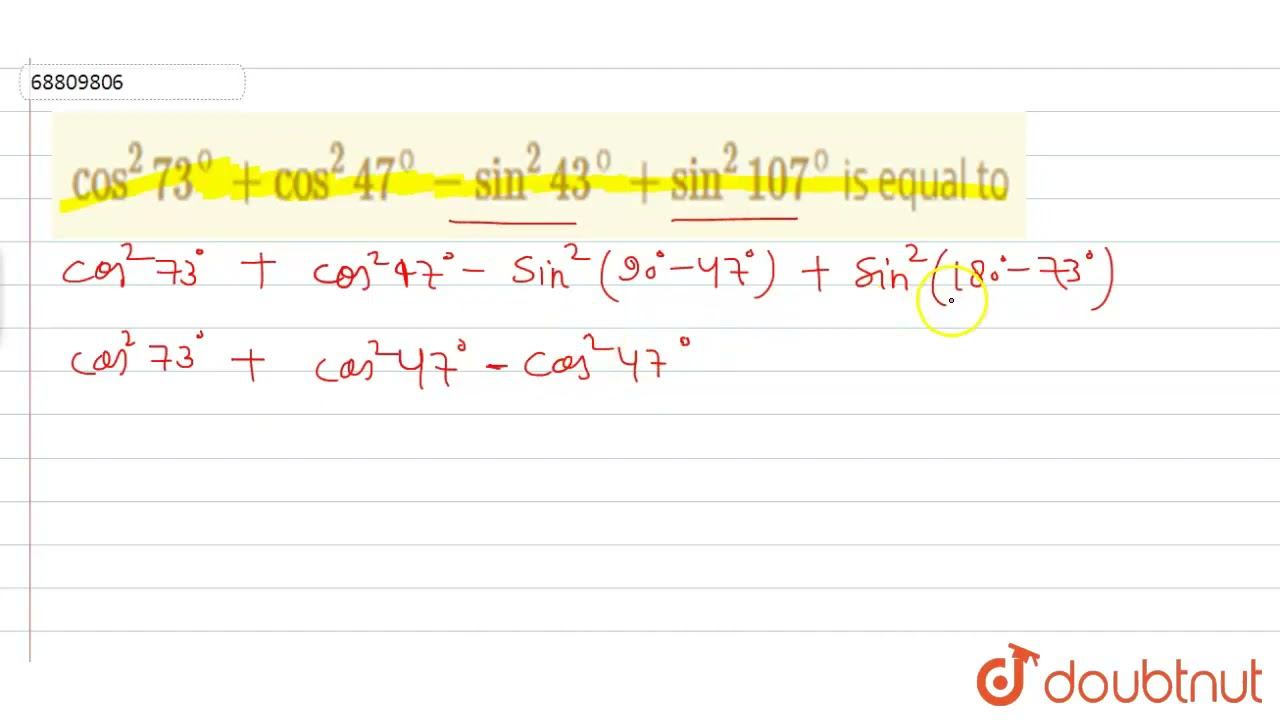 68809806
cos² 73⁰ + cos² 47⁰ − sin² 43⁰ + sin² 107⁰ is equal to
cos² 73° + cos² 47° − sin² (90° − 47°) + sin² (180° − 73°)
cos² 73° + cos² 47° − cos² 47°
doubtnut